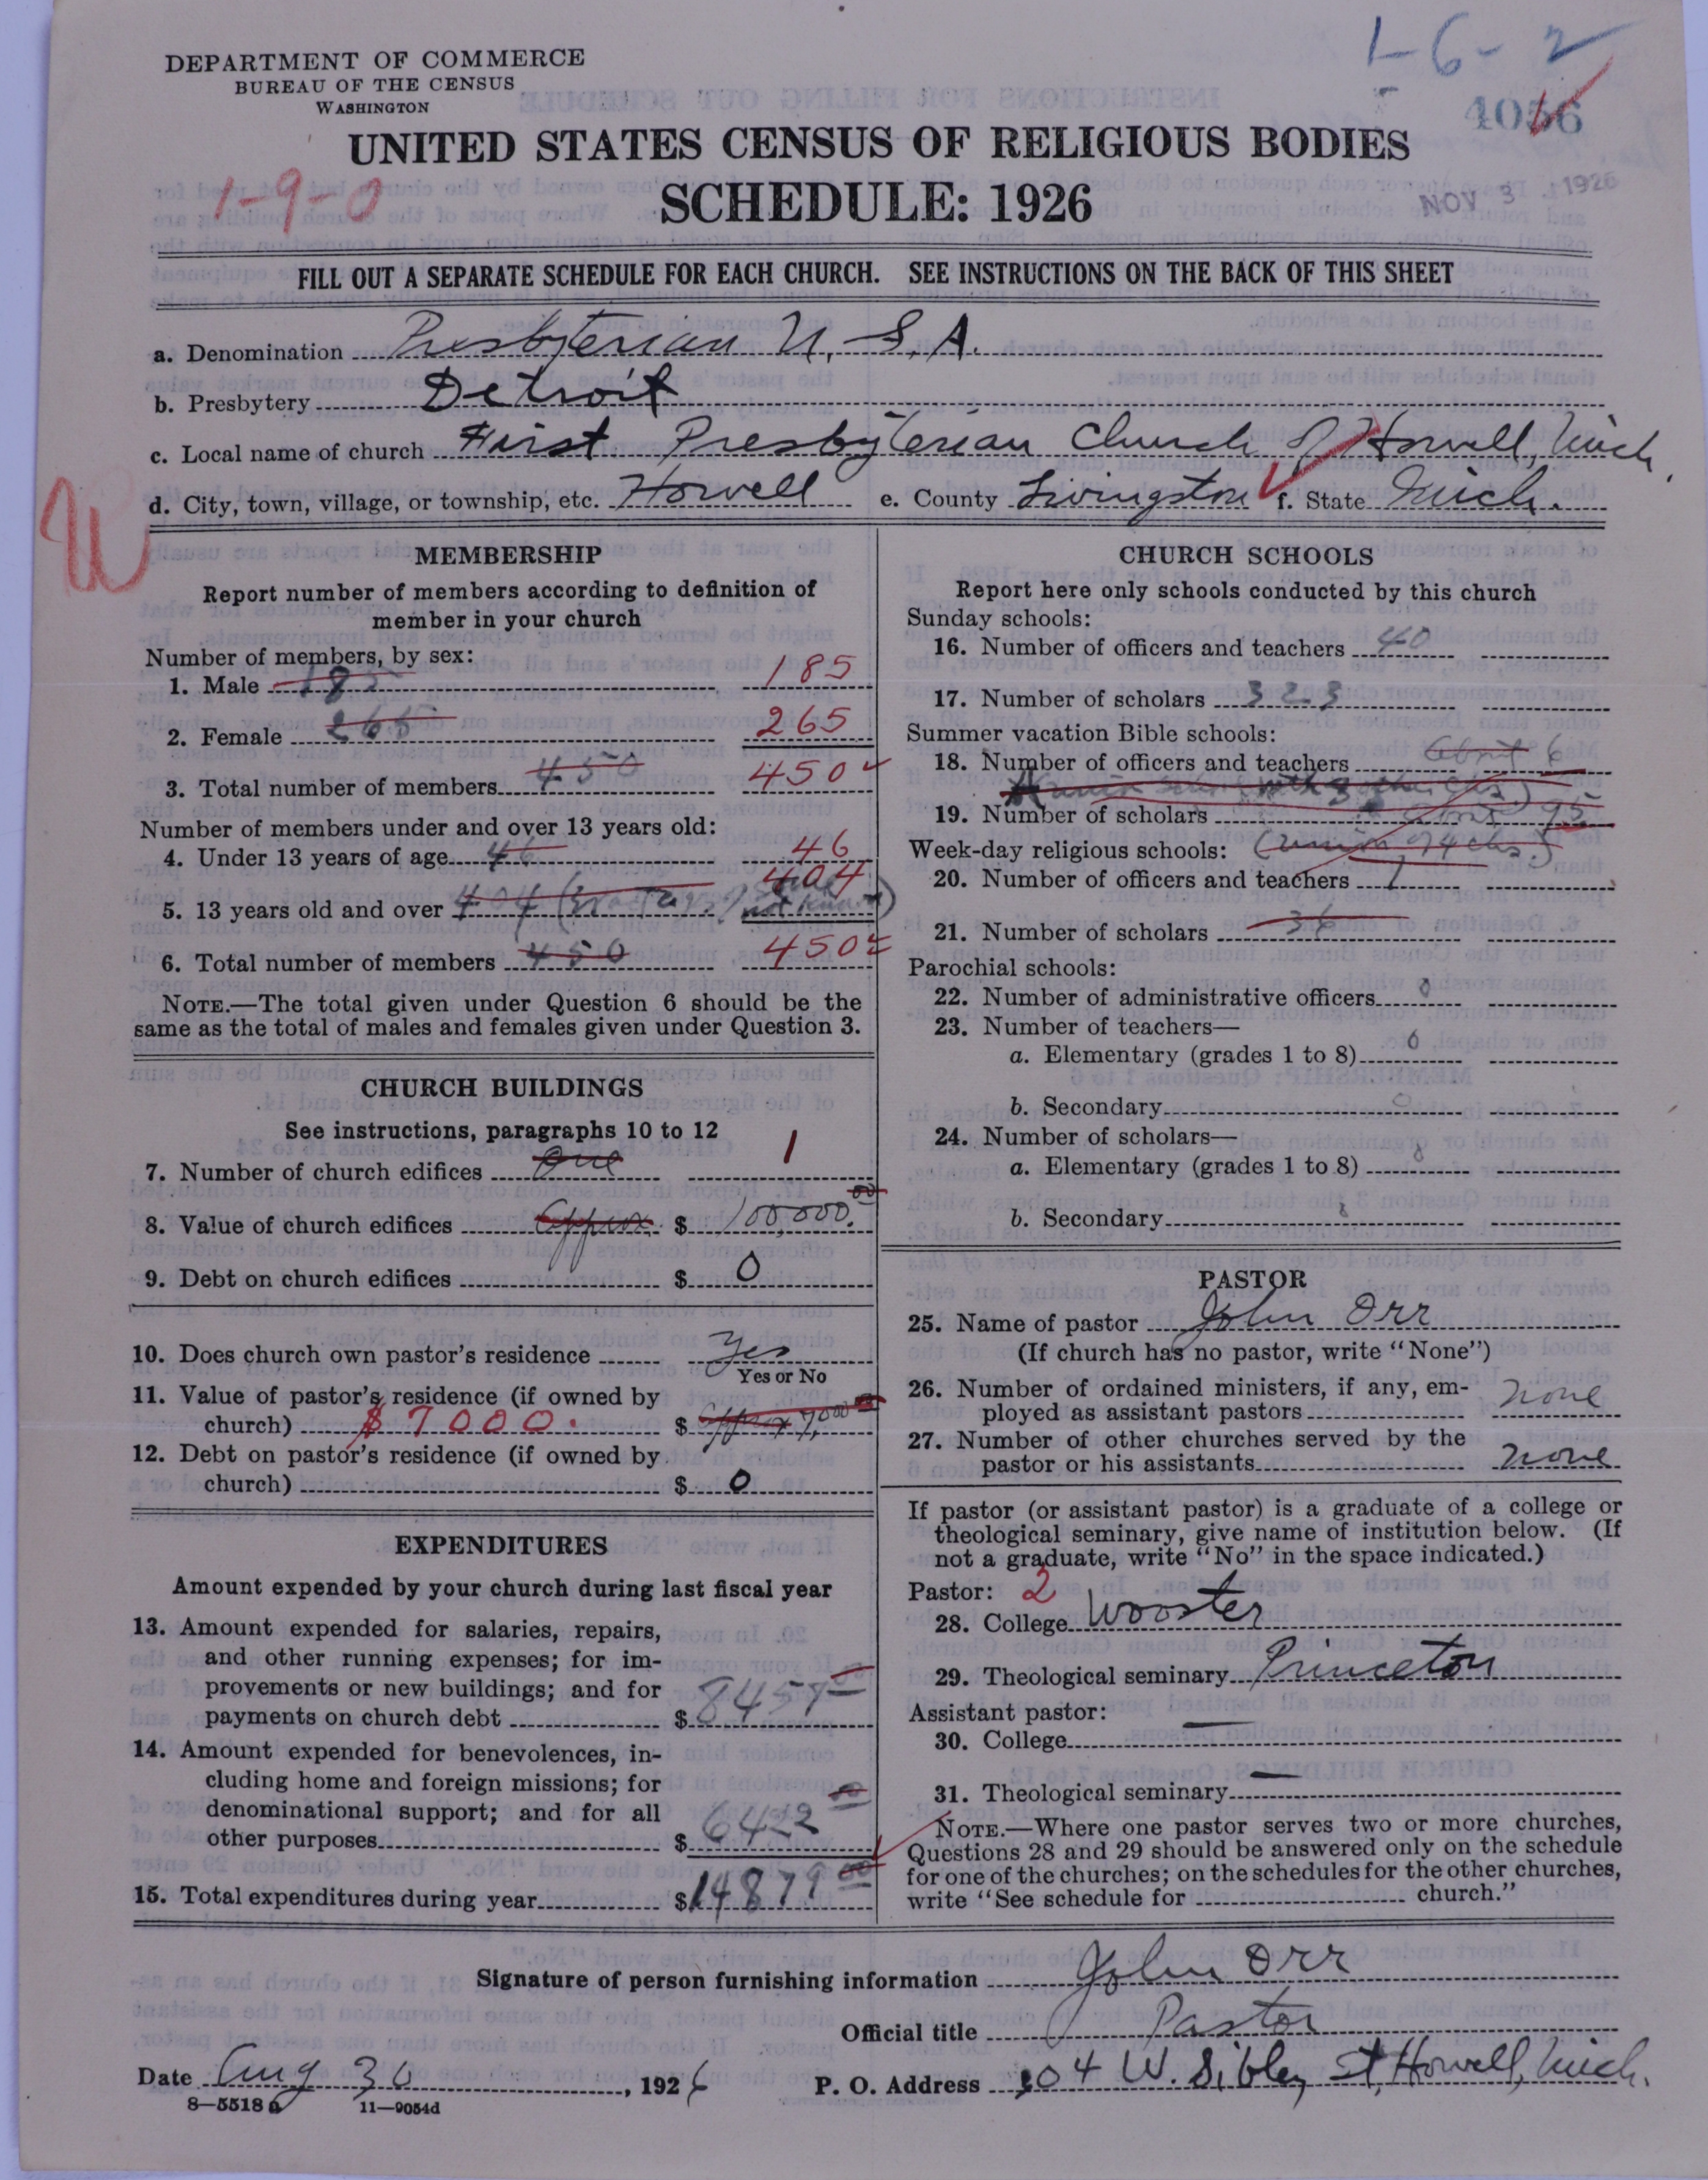 1-6-2
DEPARTMENT OF COMMERCE
BUREAU OF THE CENSUS
WASHINGTON
4056
UNITED STATES CENSUS OF RELIGIOUS BODIES
1-9-0
SCHEDULE: 1926
NOV 3 1926
FILL OUT A SEPARATE SCHEDULE FOR EACH CHURCH. SEE INSTRUCTIONS ON THE BACK OF THIS SHEET
a. Denomination Presbyterian U. S. A.
b. Presbytery Detroit
c. Local name of church First Presbyterian Church of Howell, Mich.
d. City, town, village, or township, etc. Howell e. County Livingston f. State Mich.
MEMBERSHIP
Report number of members according to definition of
member in your church
Number of members, by sex:
1. Male 185 185
2. Female 265 265
3. Total number of members 450 450
Number of members under and over 13 years old:
4. Under 13 years of age 46 46
404
5. 13 years old and over 404 not known)
6. Total number of members 450 450
NOTE.—The total given under Question 6 should be the
same as the total of males and females given under Question 3.
CHURCH BUILDINGS
See instructions, paragraphs 10 to 12
7. Number of church edifices One 1
8. Value of church edifices Approx. $ 100,000.00
9. Debt on church edifices $ 0
10. Does church own pastor's residence Yes
Yes or No
11. Value of pastor's residence (if owned by
church) $7000. $ Approx 7,000 00
12. Debt on pastor's residence (if owned by
church) $ 0
EXPENDITURES
Amount expended by your church during last fiscal year
13. Amount expended for salaries, repairs,
and other running expenses; for im-
provements or new buildings; and for
payments on church debt $ 8457
14. Amount expended for benevolences, in-
cluding home and foreign missions; for
denominational support; and for all
other purposes $ 6422 00
15. Total expenditures during year $ 14879 00
CHURCH SCHOOLS
Report here only schools conducted by this church
Sunday schools:
16. Number of officers and teachers 40
17. Number of scholars 323
Summer vacation Bible schools:
18. Number of officers and teachers about 6
(union school with 3 other chs.)
19. Number of scholars about 95
Week-day religious schools: (union of 4 chs.)
20. Number of officers and teachers 1
21. Number of scholars 36
Parochial schools:
22. Number of administrative officers 0
23. Number of teachers—
a. Elementary (grades 1 to 8) 0
b. Secondary 0
24. Number of scholars—
a. Elementary (grades 1 to 8) 0
b. Secondary 0
PASTOR
25. Name of pastor John Orr
(If church has no pastor, write "None")
26. Number of ordained ministers, if any, em-
ployed as assistant pastors none
27. Number of other churches served by the
pastor or his assistants none
If pastor (or assistant pastor) is a graduate of a college or
theological seminary, give name of institution below. (If
not a graduate, write "No" in the space indicated.)
Pastor: 2
28. College Wooster
29. Theological seminary Princeton
Assistant pastor:
30. College —
31. Theological seminary —
NOTE.—Where one pastor serves two or more churches,
Questions 28 and 29 should be answered only on the schedule
for one of the churches; on the schedules for the other churches,
write "See schedule for church."
Signature of person furnishing information John Orr
Official title Pastor
Date Aug 30, 1926 P. O. Address 304 W. Sibley St, Howell, Mich.
8—5518 a 11—9054d